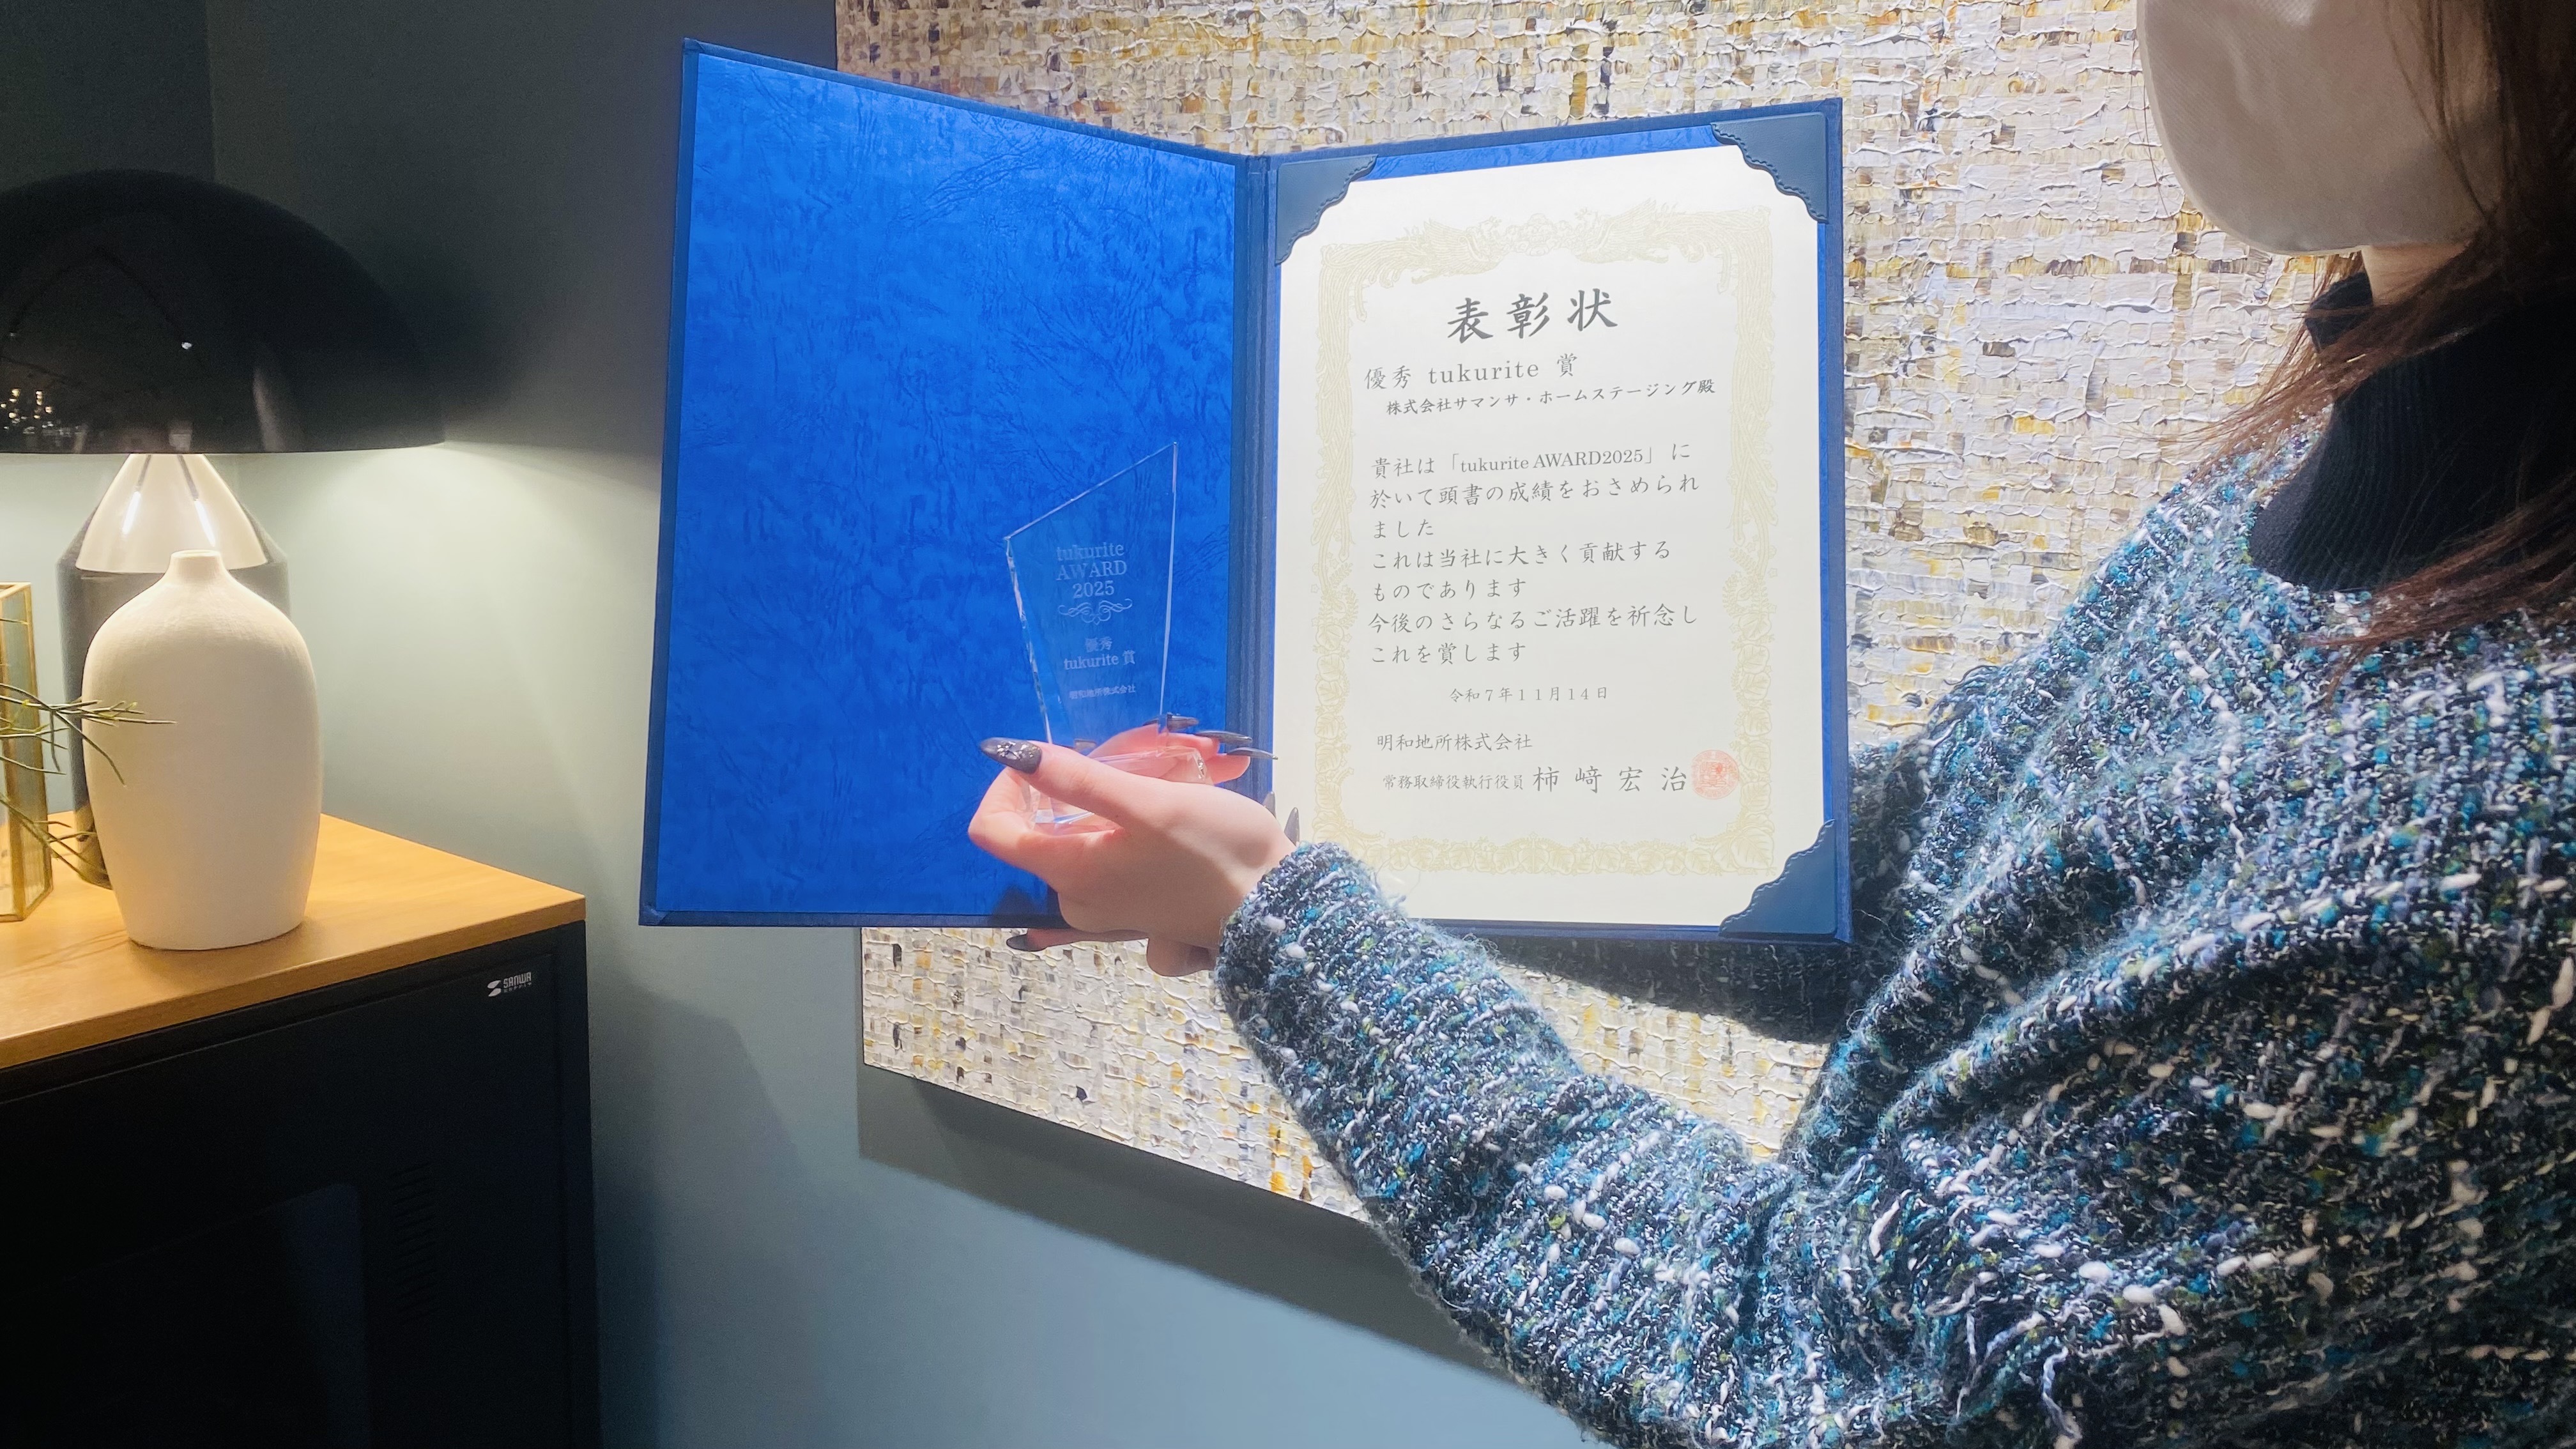 表彰状
優秀 tukurite 賞
株式会社サマンサ・ホームステージング殿
貴社は「tukurite AWARD2025」に
於いて頭書の成績をおさめられ
ました
これは当社に大きく貢献する
ものであります
今後のさらなるご活躍を祈念し
これを賞します
令和7年11月14日
明和地所株式会社
常務取締役執行役員 柿﨑宏治
tukurite
AWARD
2025
優秀
tukurite 賞
明和地所株式会社
SANWA
SUPPLY